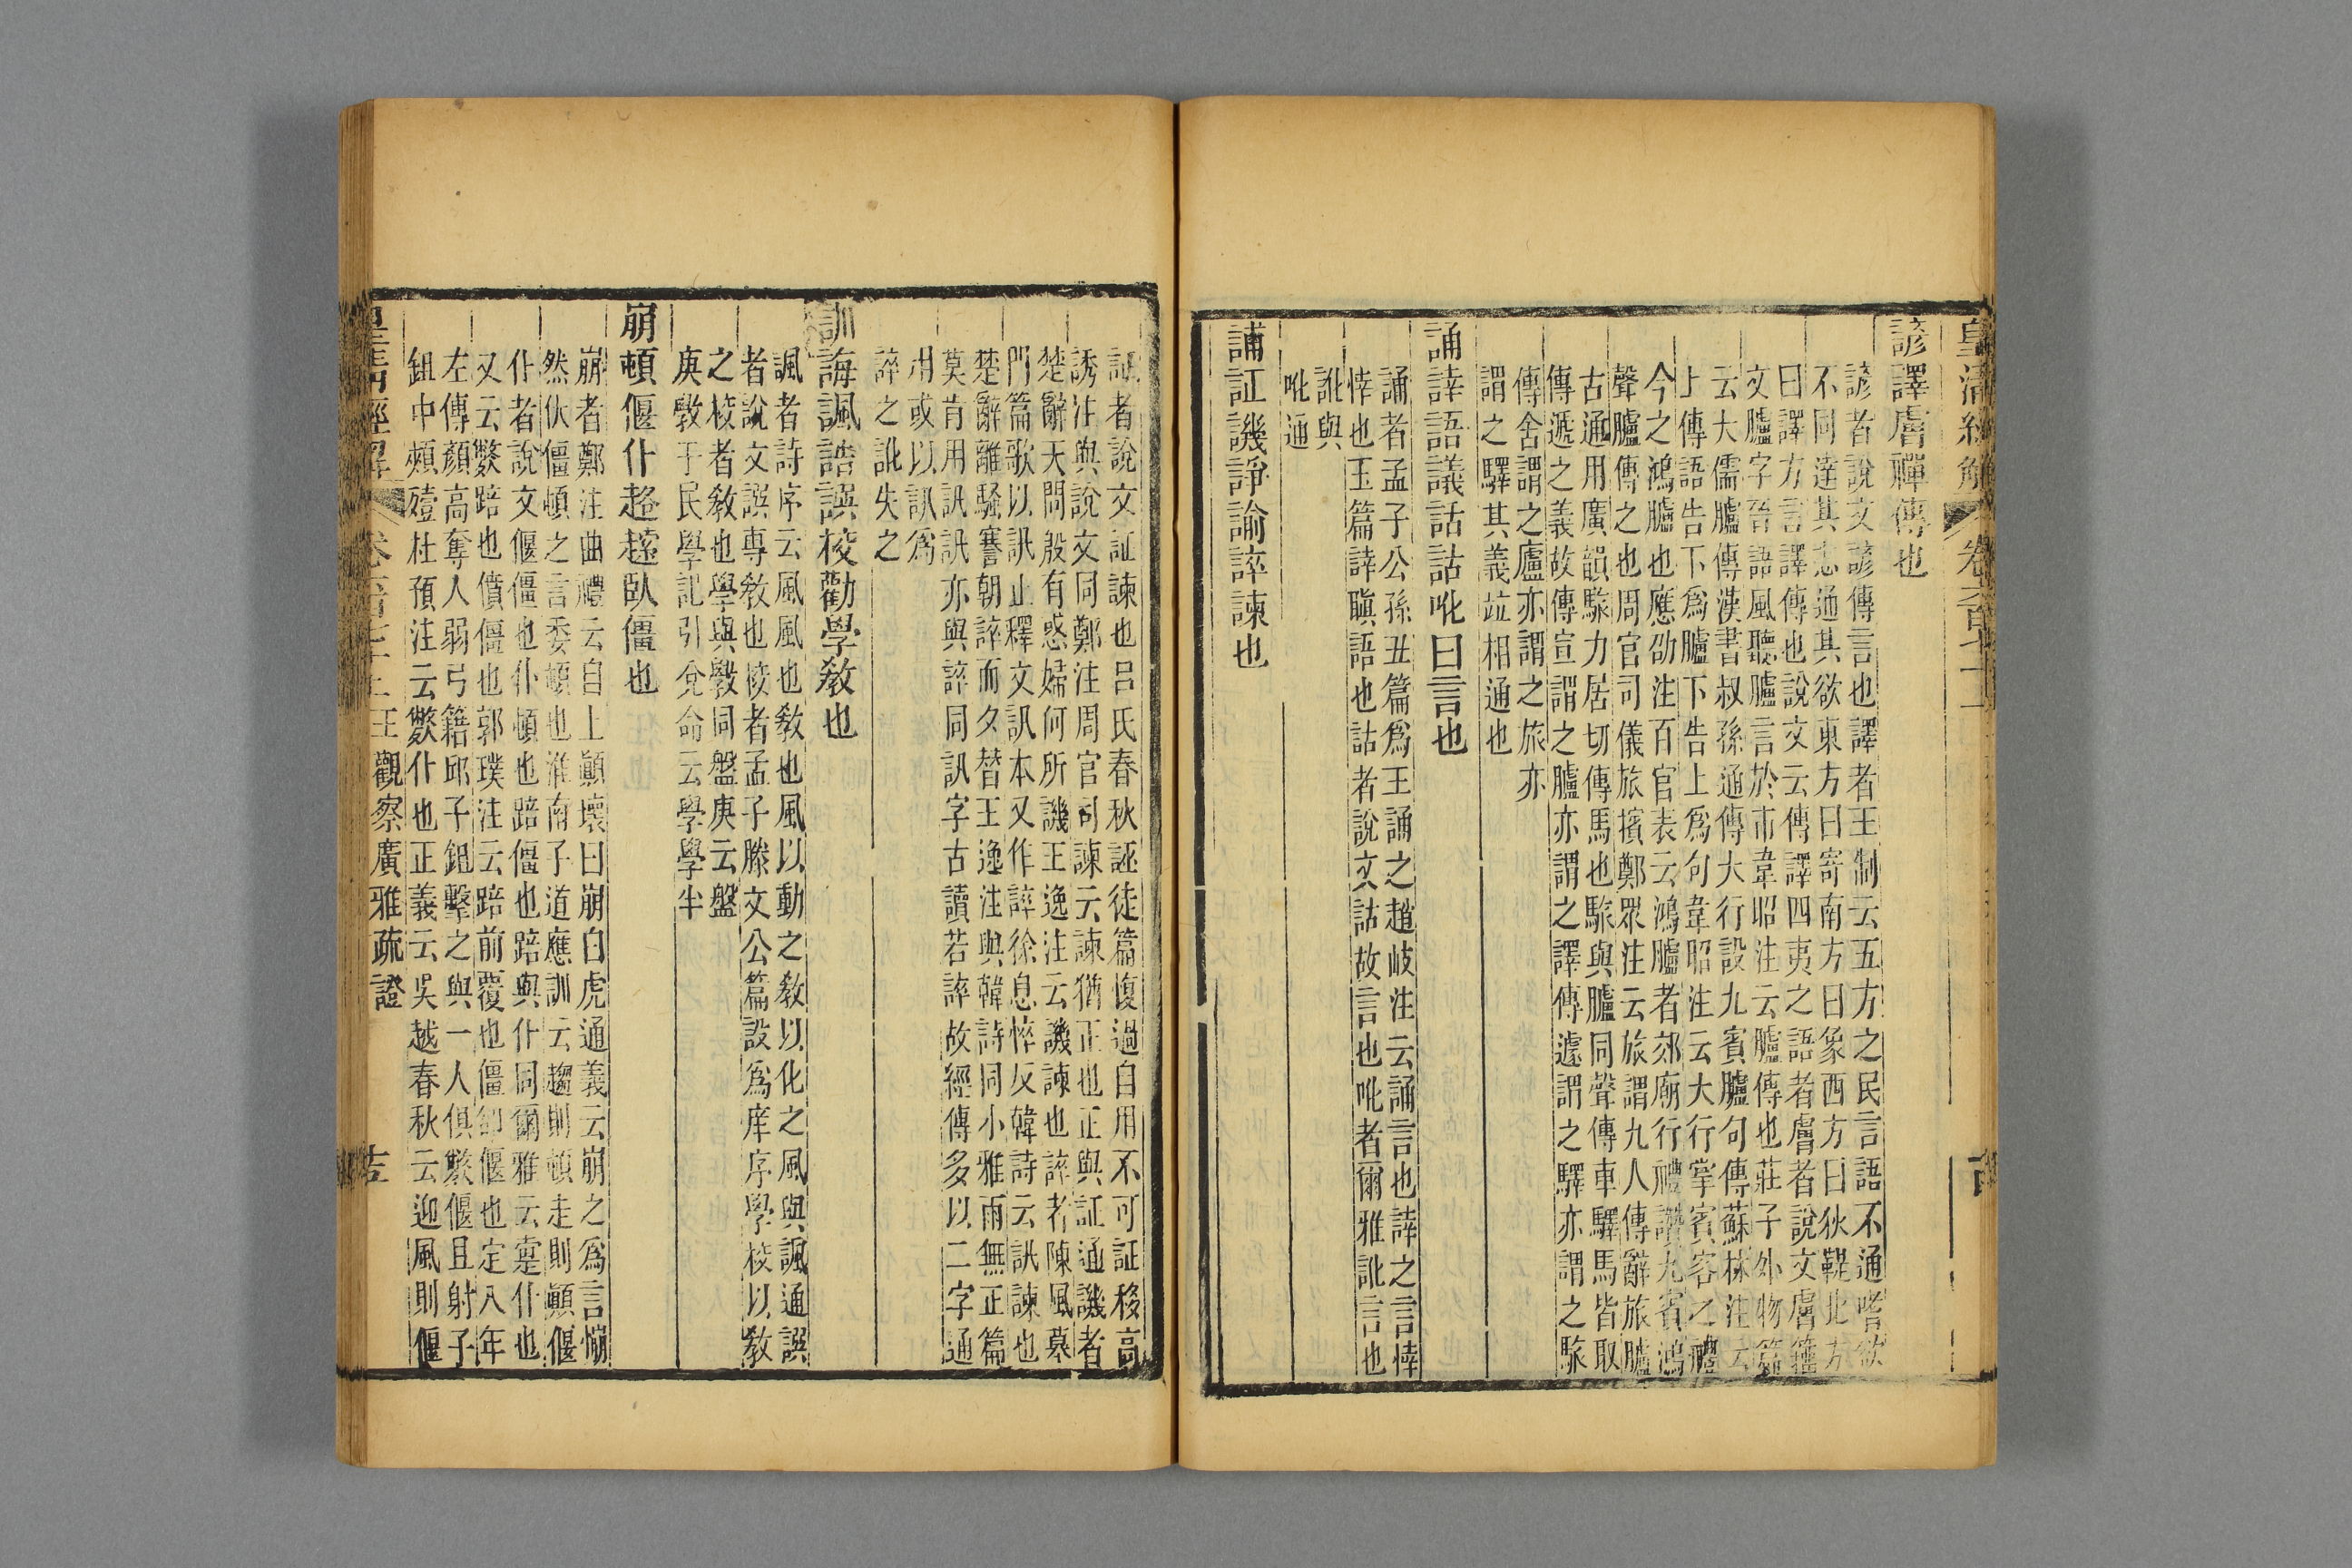 皇清經解 卷六百七十一
諺譯膚禪傳也
諺者說文諺傳言也譯者王制云五方之民言語不通嗜欲
不同達其志通其欲東方曰寄南方曰象西方曰狄鞮北方
曰譯方言譯傳也說文云傳譯四夷之語者膚者說文膚籀
文臚字晉語風聽臚言於市韋昭注云臚傳也莊子外物篇
云大儒臚傳漢書叔孫通傳大行設九賓臚句傳蘇林注云
上傳語告下爲臚下告上爲句韋昭注云大行掌賓客之禮
今之鴻臚也應劭注百官表云鴻臚者郊廟行禮讚九賓鴻
聲臚傳之也周官司儀旅擯鄭眾注云旅謂九人傳辭旅臚
古通用廣韻駼力居切傳馬也駼與臚同聲傳車驛馬皆取
傳遞之義故傳宣謂之臚亦謂之譯傳遽謂之驛亦謂之駼
傳舍謂之廬亦謂之旅亦
謂之驛其義竝相通也
誦誶語議話詁吪曰言也
誦者孟子公孫丑篇爲王誦之趙岐注云誦言也誶之言悻
悻也玉篇誶瞋語也詁者說文詁故言也吪者爾雅訛言也
訛與
吪通
誧証譏諍諭誶諫也
証者說文証諫也呂氏春秋誣徒篇愎過自用不可証移高
誘注與說文同鄭注周官司諫云諫猶正也正與証通譏者
楚辭天問殷有惑婦何所譏王逸注云譏諫也誶者陳風墓
門篇歌以訊止釋文訊本又作誶徐息悴反韓詩云訊諫也
楚辭離騷謇朝誶而夕替王逸注與韓詩同小雅雨無正篇
莫肯用訊訊亦與誶同訊字古讀若誶故經傳多以二字通
用或以訊爲
誶之訛失之
訓誨諷誥譔校勸學教也
諷者詩序云風風也教也風以動之教以化之風與諷通譔
者說文譔專教也校者孟子滕文公篇設爲庠序學校以教
之校者教也學與斆同盤庚云盤
庚斆于民學記引兌命云學學半
崩頓偃仆趍䟫臥僵也
崩者鄭注曲禮云自上顚壞曰崩白虎通義云崩之爲言㥊
然伏僵頓之言委頓也淮南子道應訓云趨則頓走則顚偃
仆者說文偃僵也仆頓也踣僵也踣與仆同爾雅云疐仆也
又云斃踣也僨僵也郭璞注云踣前覆也僵卻偃也定八年
左傳顏高奪人弱弓籍邱子鉏擊之與一人俱斃偃且射子
鉏中頰殪杜預注云斃仆也正義云吳越春秋云迎風則偃
皇清經解 卷六百七十一 王觀察廣雅疏證